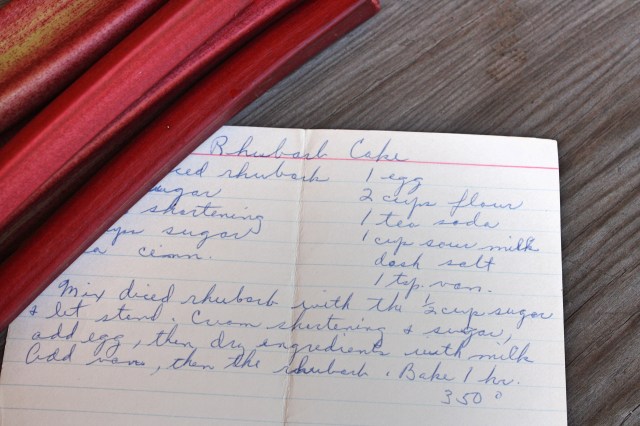 Rhubarb Cake
iced rhubarb 1 egg
sugar 2 cups flour
shortening 1 tea soda
ups sugar 1 cup sour milk
a cinn. dash salt
1 tsp. van.
Mix diced rhubarb with the 1/2 cup sugar
& let stand. Cream shortening & sugar,
add egg, then dry ingredients with milk
Add van., then the rhubarb. Bake 1 hr.
350°